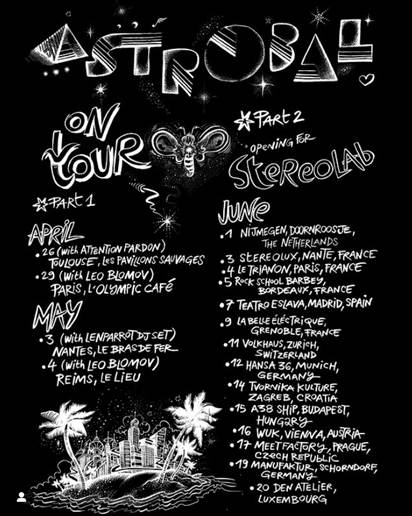 ASTROBAL
ON
TOUR
Part 1
APRIL
• 26 (with ATTENTION PARDON)
TOULOUSE, LES PAVILLONS SAUVAGES
• 29 (with LEO BLOMOV)
PARIS, L'OLYMPIC CAFÉ
MAY
• 3 (with LENPARROT DJ SET)
NANTES, LE BRAS DE FER
• 4 (with LEO BLOMOV)
REIMS, LE LIEU
Part 2
OPENING FOR
StereoLab
JUNE
• 1 NIJMEGEN, DOORNROOSJE,
THE NETHERLANDS
• 3 STEREOLUX, NANTE, FRANCE
• 4 LE TRIANON, PARIS, FRANCE
• 5 ROCK SCHOOL BARBEY,
BORDEAUX, FRANCE
• 7 TEATRO ESLAVA, MADRID, SPAIN
• 9 LA BELLE ÉLECTRIQUE,
GRENOBLE, FRANCE
• 11 VOLKHAUS, ZURICH,
SWITZERLAND
• 12 HANSA 36, MUNICH,
GERMANY
• 14 TVORNIKA KULTURE,
ZAGREB, CROATIA
• 15 A38 SHIP, BUDAPEST,
HUNGARY
• 16 WUK, VIENNA, AUSTRIA
• 17 MEETFACTORY, PRAGUE,
CZECH REPUBLIC
• 19 MANUFAKTUR, SCHORNDORF,
GERMANY
• 20 DEN ATELIER,
LUXEMBOURG